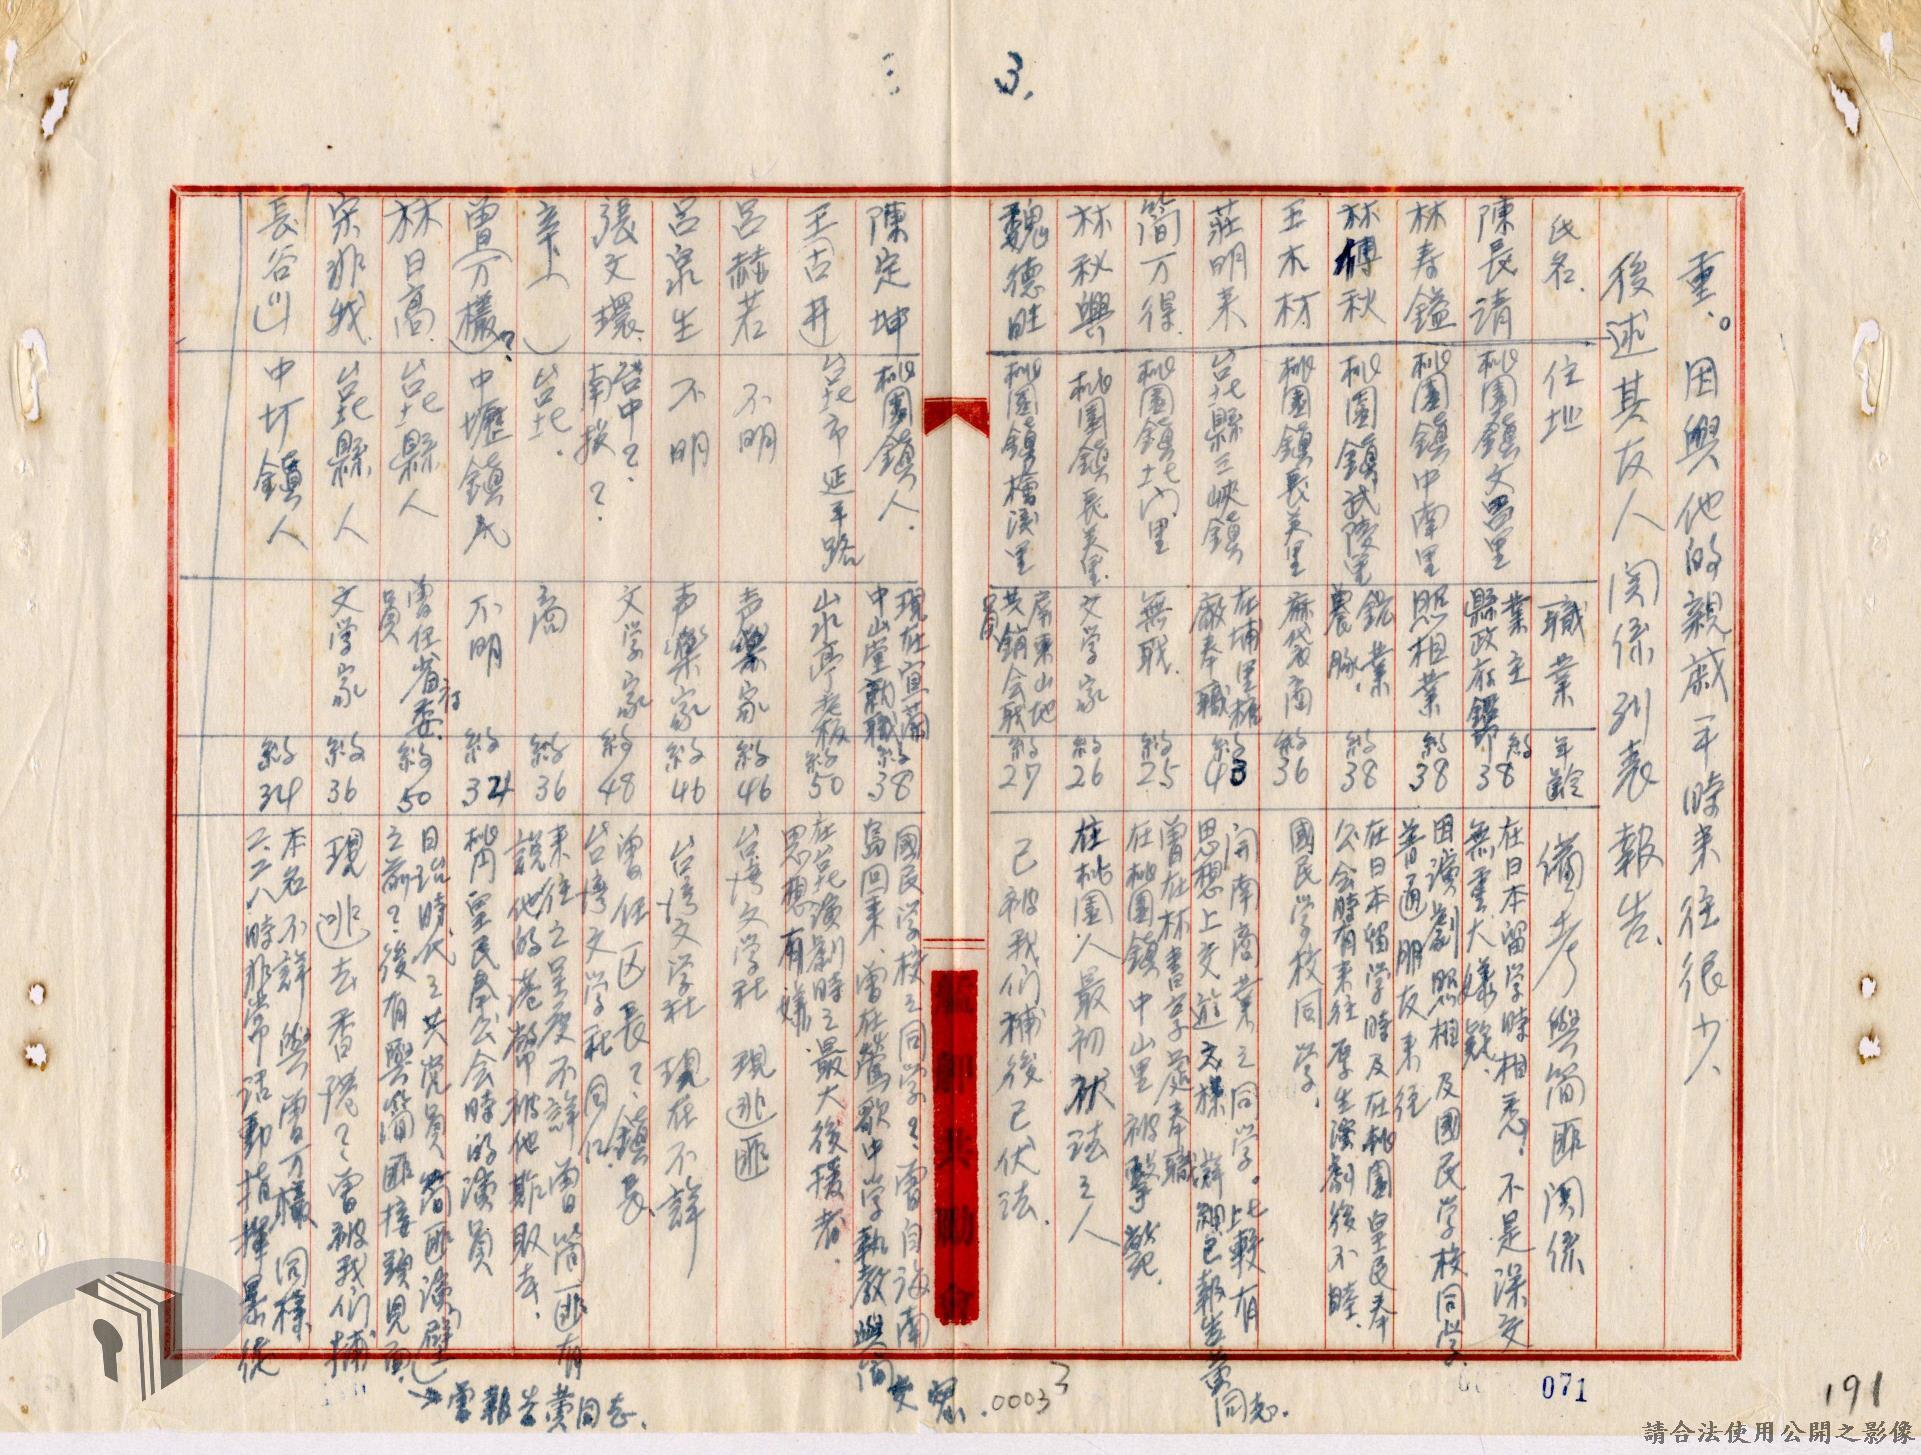 3.
重。因與他的親戚平時来往很少、
後述其友人関係列表報告、
氏名. 住地 職業 年齡 備考與簡匪関係
陳長清 桃園鎮文昌里 業主 縣政府 約38 在日本留学時相悉？不是深交 無重大嫌疑、
林寿鎰 桃園鎮中南里 照相業 約38 因演劇照相及國民学校同学、普通朋友来往
林傳秋 桃園鎮武陵里 農 約38 在日本留学時及在桃園皇民奉公会時有来往厚生演劇後不睦、
王木材 桃園鎮長美里 麻袋商 約36 國民学校同学、
莊明来 台北縣三峽鎮 在埔里糖廠奉職 約43 開南商業之同学。比較有思想上交遊 詳細已報告黄同志.
简万得. 桃園鎮北门里 無职. 約25 曾在林書字處奉職 在桃園鎮中山里被擊斃死.
林秋興 桃園鎮長美里. 文学家 約26 在桃園人最初伏法之人
魏德旺 桃園鎮檜溪里 屏東山地共銷会职員 約27 已被我们補後已伏法.
陳定坤 桃園鎮人. 現在宜蘭中山堂就職 約38 國民学校之同学？曾自海南島回来、曾在鶯歌中学執教與简
王古井 台北市延平路 山水亭老板 約50 在台北演劇時之最大後援者. 思想有嫌
呂赫若 不明 声樂家 約46 台湾文学社 現逃匪
呂泉生 不明 声樂家 約46 台湾文学社 現在不詳
張文環 台中？南投？ 文学家 約48 曾任区長？鎮長 台湾文学社同仁、
辛( ) 台北. 商 約36 来往之里度不詳 曾简匪有說他的港幣被他斯取去、
曾(万樣)？ 中壢鎮民 不明 約34 桃円皇民奉公会時的演員
林日高 台北縣人 曾任省府委員 約50 日治時代之共党員 之前？後有與简匪接頭見面、曾報告黄同志、
宋非我. 台北縣人 文学家 約36 現逃去香港？曾被我们捕
長谷川 中圷鎮人 約34 本名不詳與曾万樣同樣 二二八時非常活動指揮暴徒
.00033
071
191
請合法使用公開之影像